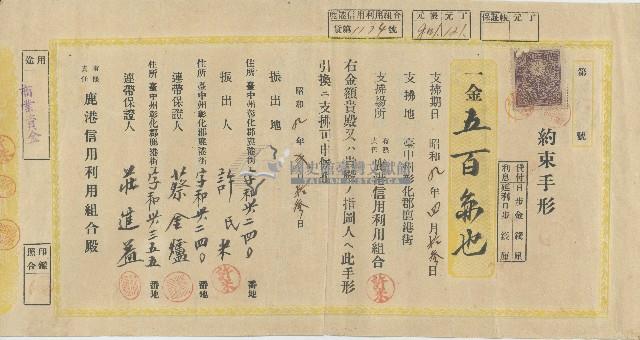 鹿港信用利用組合
貸第1174號
元帳
元丁
保証帳
元丁
第　號
約束手形
貸付日步金　錢　厘
利息延利日步　錢　厘
一金五百円也
支拂期日　昭和九年四月拾參日
支拂地　臺中州彰化郡鹿港街
支拂場所　有限責任鹿港信用利用組合
右金額貴殿又ハ貴殿ノ指圖人ヘ此手形
引換ニ支拂可申候也
昭和九年　月拾參日
振出地
住所　臺中州彰化郡鹿港街字和興二四〇番地
振出人　許氏米
住所　臺中州彰化郡鹿港街字和興二四〇番地
連帶保證人　蔡金爐
住所　臺中州彰化郡鹿港街字和興三五五番地
連帶保證人　莊進益
有限責任鹿港信用利用組合殿
用途
商業資金
印鑑照合
國史館臺灣文獻館